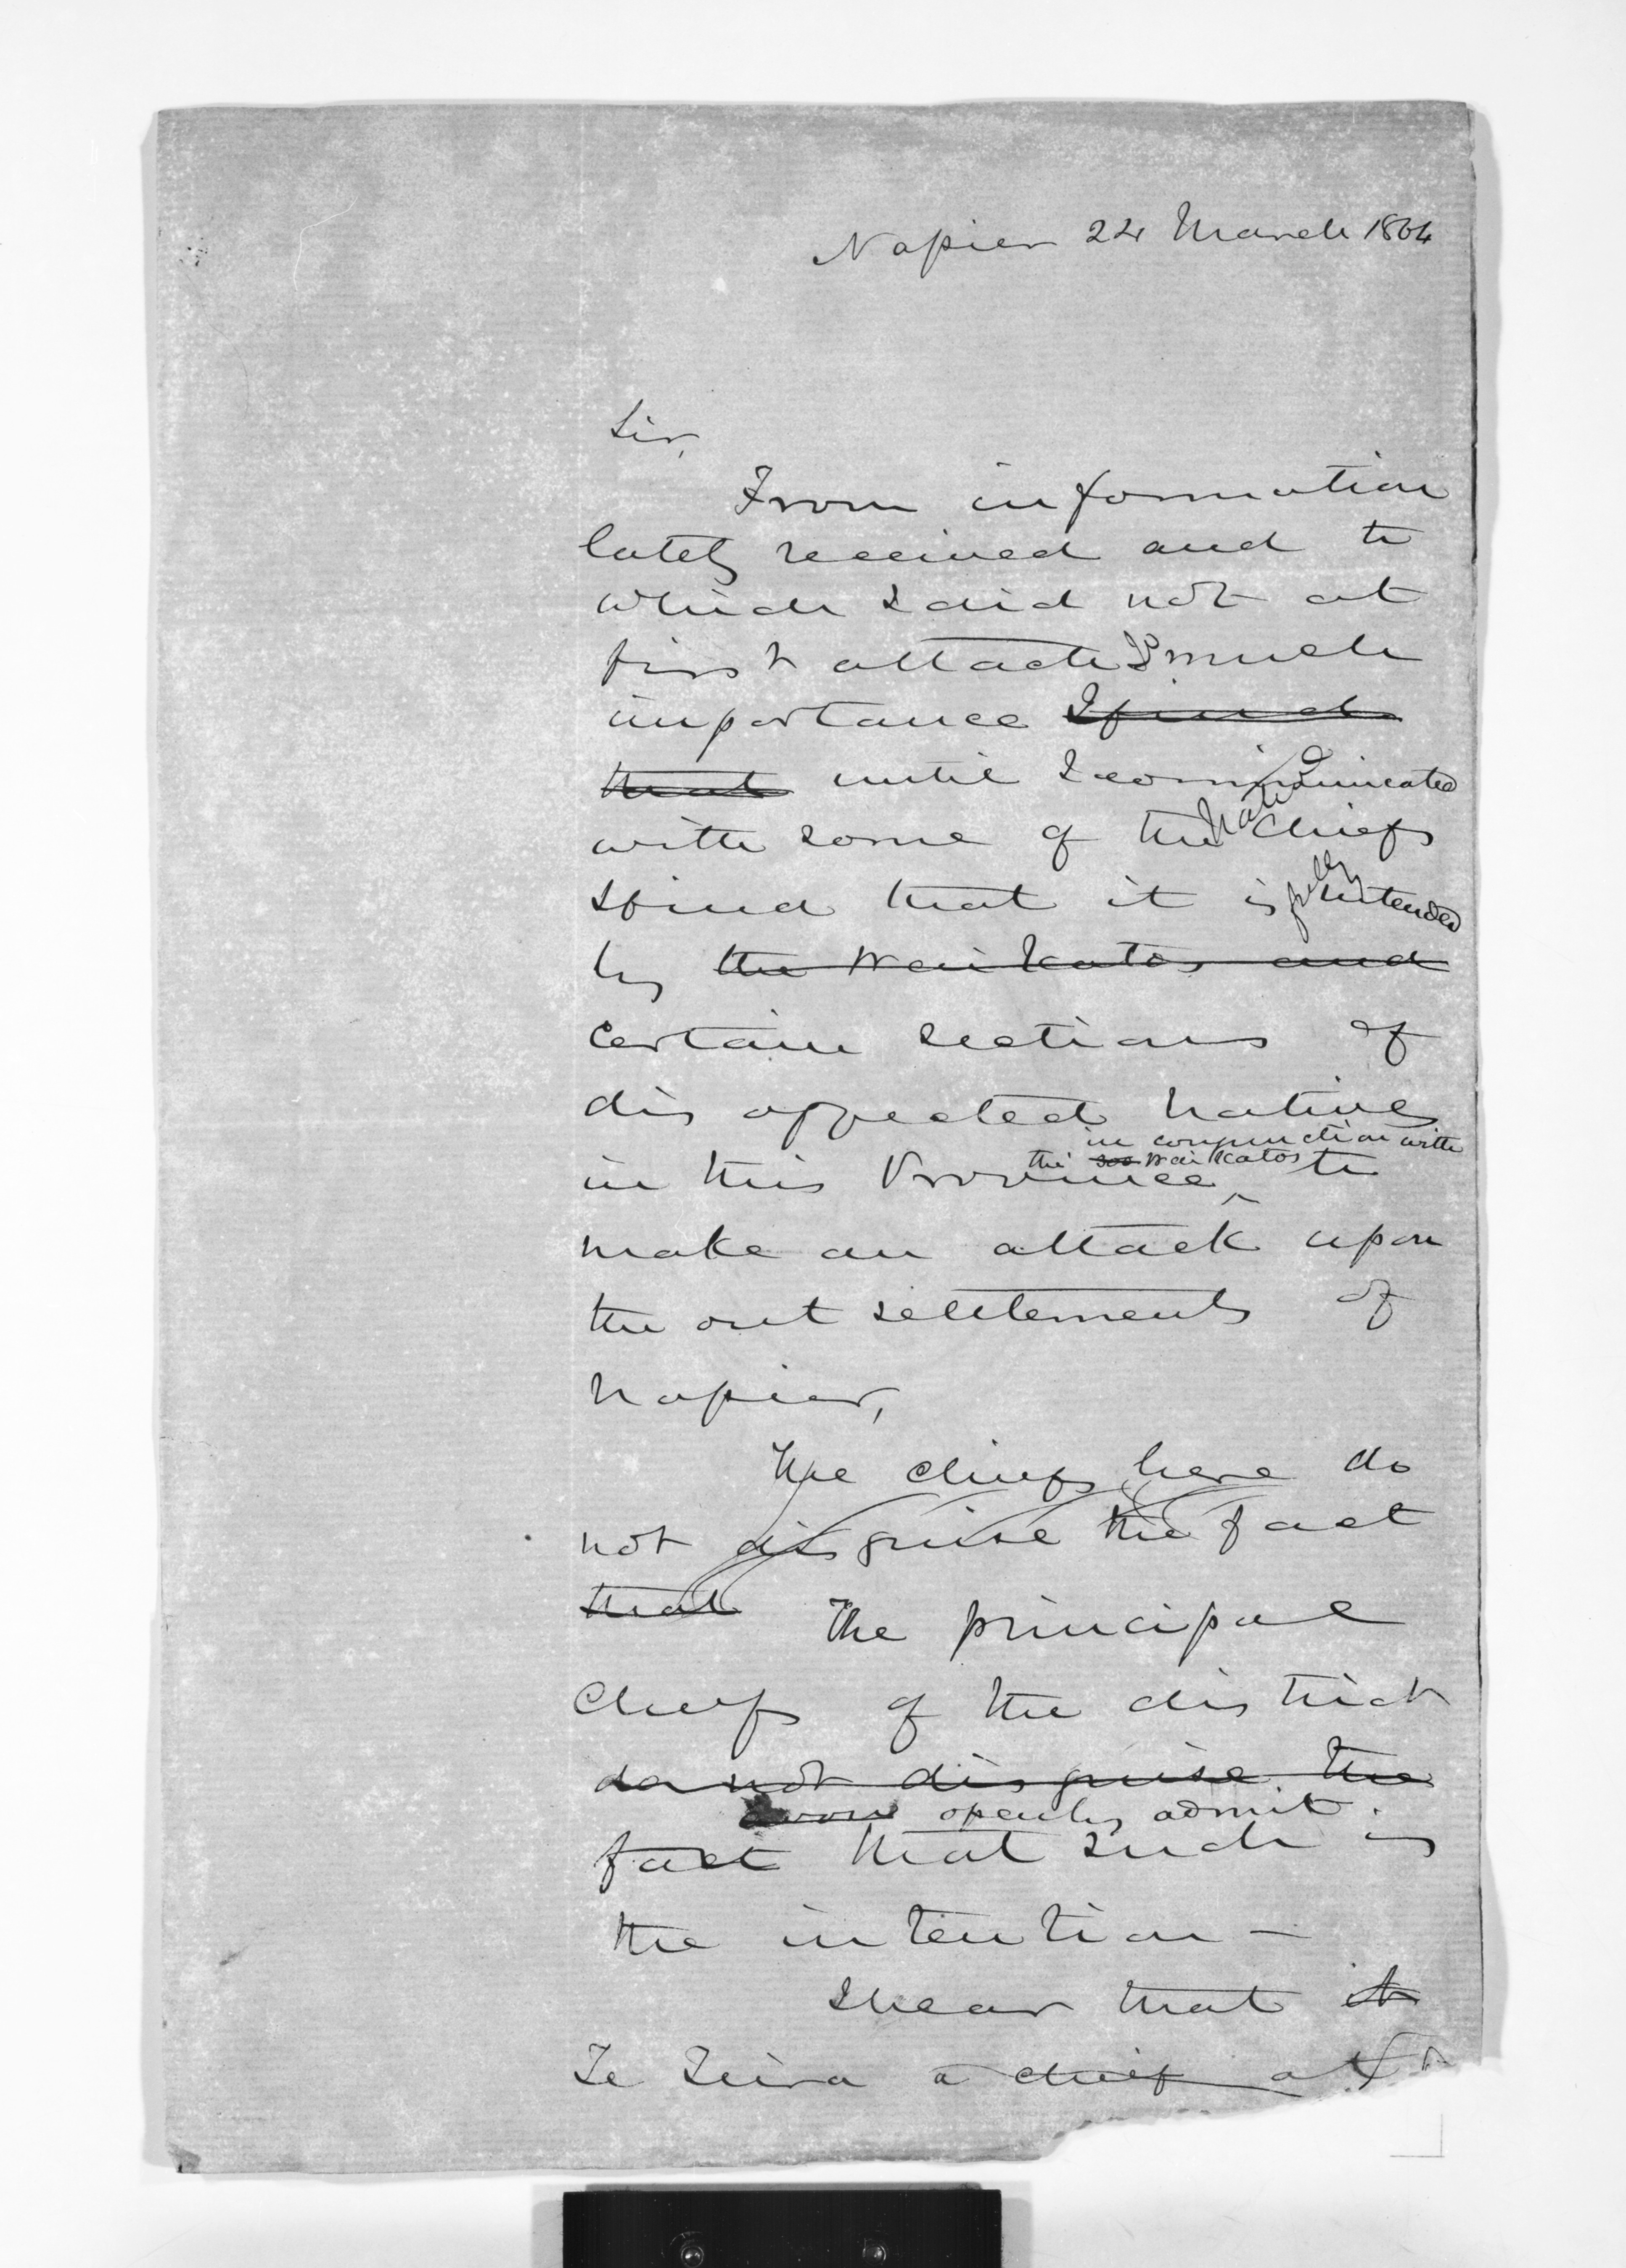 Napier 24 March 1864
Sir,
From information
lately received and to
which I did not at
first attach much
importance I find
that until I communicated
with some of the native Chiefs
I find that it is fully intended
by the Waikatos and
certain sections of
dis affected natives
in conjunction with
the Waikatos
in this Province to
make an attack upon
the out settlements of
Napier,
The chiefs here do
not disguise the fact
that The principal
Chiefs of the district
do not disguise the
openly admit.
fact that such is
the intention —
I hear that it
Te Teira a chief at